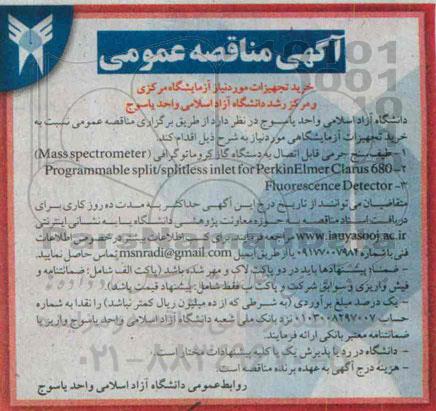 آگهی مناقصه عمومی
خرید تجهیزات موردنیاز آزمایشگاه مرکزی
و مرکز رشد دانشگاه آزاد اسلامی واحد یاسوج
دانشگاه آزاد اسلامی واحد یاسوج در نظر دارد از طریق برگزاری مناقصه عمومی نسبت به
خرید تجهیزات آزمایشگاهی موردنیاز به شرح ذیل اقدام کند.
۱- طیف سنج جرمی قابل اتصال به دستگاه گاز کروماتوگرافی (Mass spectrometer)
۲- Programmable split/splitless inlet for PerkinElmer Clarus 680
۳- Fluorescence Detector
متقاضیان می‌توانند از تاریخ درج این آگهی حداکثر به مدت ده روز کاری برای
دریافت اسناد مناقصه به حوزه معاونت پژوهشی دانشگاه یا به نشانی اینترنتی
www.iauyasooj.ac.ir مراجعه فرمایند. برای کسب اطلاعات بیشتر در خصوص اطلاعات
فنی با شماره ۰۹۱۷۷۰۰۷۹۸۴ یا از طریق ایمیل msnradi@gmail.com تماس حاصل نمایید.
- ضمناً پیشنهادها باید در دو پاکت لاک و مهر شده باشد (پاکت الف شامل: ضمانتنامه و
فیش واریزی و سوابق شرکت و پاکت ب فقط شامل: پیشنهاد قیمت باشد)
- یک درصد مبلغ برآوردی (به شرطی که از ده میلیون ریال کمتر نباشد) را نقدا به شماره
حساب ۰۱۰۳۰۰۸۲۹۷۰۰۷ نزد بانک ملی شعبه دانشگاه آزاد اسلامی واحد یاسوج واریز یا
ضمانتنامه معتبر بانکی ارائه فرمایند.
- دانشگاه در رد یا پذیرش یک یا کلیه پیشنهادات مختار است.
- هزینه درج آگهی به عهده برنده مناقصه است.
روابط عمومی دانشگاه آزاد اسلامی واحد یاسوج